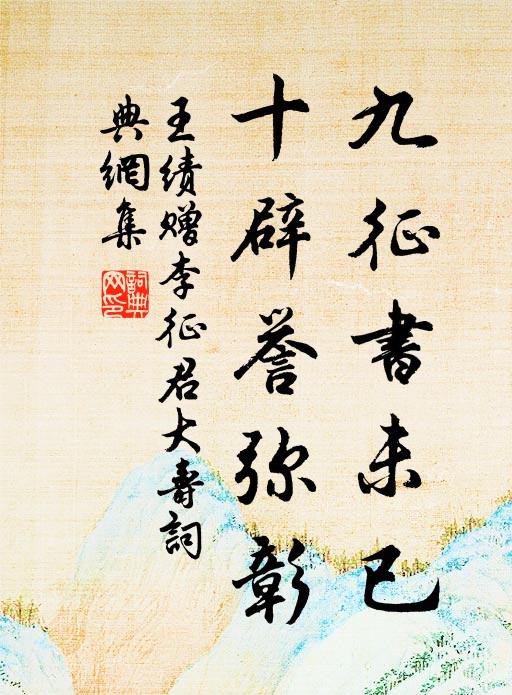 九征書未已
十辟誉弥彰
王绩赠李征君大壽詞
典網集
詞典網印